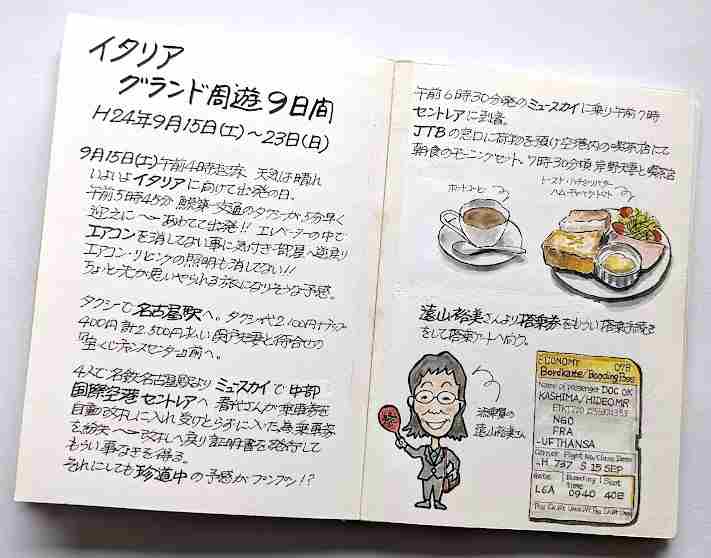 イタリア
グランド周遊9日間
H24年9月15日(土)~23日(日)
9月15日(土)午前4時起床、天気は晴れ
いよいよイタリアに向けて出発の日。
午前5時45分 鯱第一交通のタクシーが5分早く
迎えに〜〜あわてて出発!! エレベーターの中で
エアコンを消してない事に気付き部屋へ逆戻り
エアコン・リビングの照明も消してない!!
ちょっと先が思いやられる旅になりそうな予感。
タクシーで名古屋駅へ。タクシー代2,100円+チップ
400円 計2,500円払い 夫妻と待合せの
宝くじチャンスセンター前へ。
4人で名鉄名古屋駅よりミュースカイで中部
国際空港セントレアへ さんが乗車券を
自動改札に入れ受けとらずに入った為乗車券
を紛失〜〜改札へ戻り証明書を発行して
もらい事なきを得る。
それにしても珍道中の予感がプンプン!?
午前6時30分発のミュースカイに乗り午前7時
セントレアに到着。
JTBの窓口に荷物を預け空港内の喫茶店にて
朝食のモーニングセット。7時30分頃 夫妻と喫茶店
ホットコーヒー
トースト・ハチミツバター
ハム・チャペタ・トマト
遠山裕美さんより搭乗券をもらい搭乗手続き
をして搭乗ゲートへ向う。
添乗員の
遠山裕美さん
ECONOMY 028
Bordkarte/Boarding Pass
Name of passenger DOC OK
KASHIMA/HIDEOMR
ETKT220
NGO
FRA
-UFTHANSA
Carrier Flight No/Class Date
-H 737 S 15 SEP
Gate Boarding time Seat
L6A 0940 40E